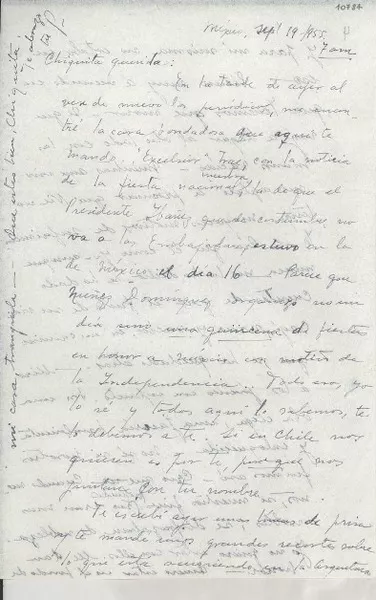 10784
México, Sept 19/955
7 am
Chiquita querida:
En la tarde de ayer al
ver de nuevo los periódicos, me encon-
tré la cosa bondadosa que aquí te
mando. "Excelsior" trae con la noticia
de la fiesta nacional nuestra, la de que el
Presidente Ibáñez, que de costumbre no
va a las Embajadas, estuvo en la
de México el día 16. Parece que
Núñez Domínguez no un
día sino una quincena de fiestas
en honor a México con motivo de
la Independencia.. Todo eso, yo
lo sé y todos aquí lo sabemos, te
lo debemos a ti. Si en Chile nos
quieren es por ti, porque nos
con tu nombre.
Te escribí ayer unas líneas de prisa
y te mandé unos grandes recortes sobre
lo que está sucediendo en la Argentina
mi casa tranquila — que estés bien, Chiquita